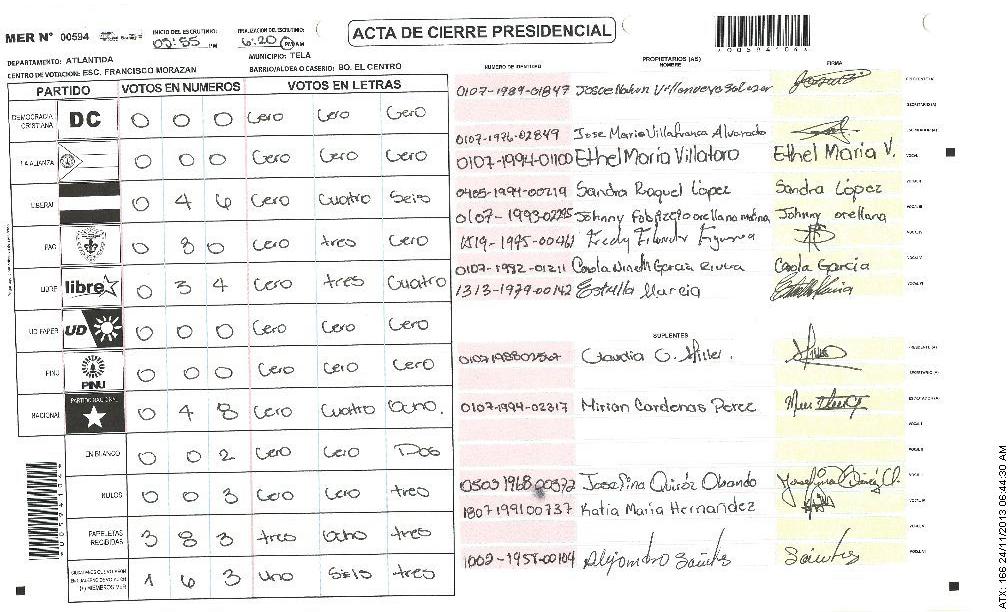 MER N° 00594
INICIO DEL ESCRUTINIO:
05:55 PM
FINALIZACION DEL ESCRUTINIO:
6:20 PM AM
ACTA DE CIERRE PRESIDENCIAL
DEPARTAMENTO: ATLANTIDA
MUNICIPIO: TELA
CENTRO DE VOTACION: ESC. FRANCISCO MORAZAN
BARRIO/ALDEA O CASERIO: BO. EL CENTRO
PARTIDO VOTOS EN NUMEROS VOTOS EN LETRAS
DEMOCRACIA CRISTIANA DC 0 0 0 Cero Cero Cero
LA ALIANZA 0 0 0 Cero Cero Cero
LIBERAL 0 4 6 Cero Cuatro Seis
PAC 0 3 0 Cero tres Cero
LIBRE libre 0 3 4 Cero tres Cuatro
UD FAPER UD 0 0 0 Cero Cero Cero
PINU PINU 0 0 0 Cero Cero Cero
NACIONAL PARTIDO NACIONAL 0 4 8 Cero Cuatro Ocho.
EN BLANCO 0 0 2 Cero Cero Dos
NULOS 0 0 3 Cero Cero tres
PAPELETAS RECIBIDAS 3 8 3 tres Ocho tres
1 6 3 Uno Seis tres
NUMERO DE IDENTIDAD PROPIETARIOS (AS) NOMBRE FIRMA
0107-1989-01847 Josue Nahun Villanueva Salazar
0107-1976-02849 Jose Maria Villafranca Alvarado
0107-1994-01100 Ethel Maria Villatoro Ethel Maria V.
0405-1994-00219 Sandra Raquel López Sandra López
0107-1993-02285 Johnny Fabrizzio orellana molina Johnny orellana
1519-1995-00461 Fredy
0107-1982-01211 Carola García Rivera Carola García
1313-1979-00142 Estrella Garcia
SUPLENTES
Claudia O. Miller.
0107-1994-02317 Mirian Cardenas Perez
0503 1968 00372 Josefina Quiróz Obando
1807199100737 Katia Maria Hernandez
1002-1958-00104 Alejandro Saintes Saintes
ATX: 166 24/11/2013 06:44:30 AM